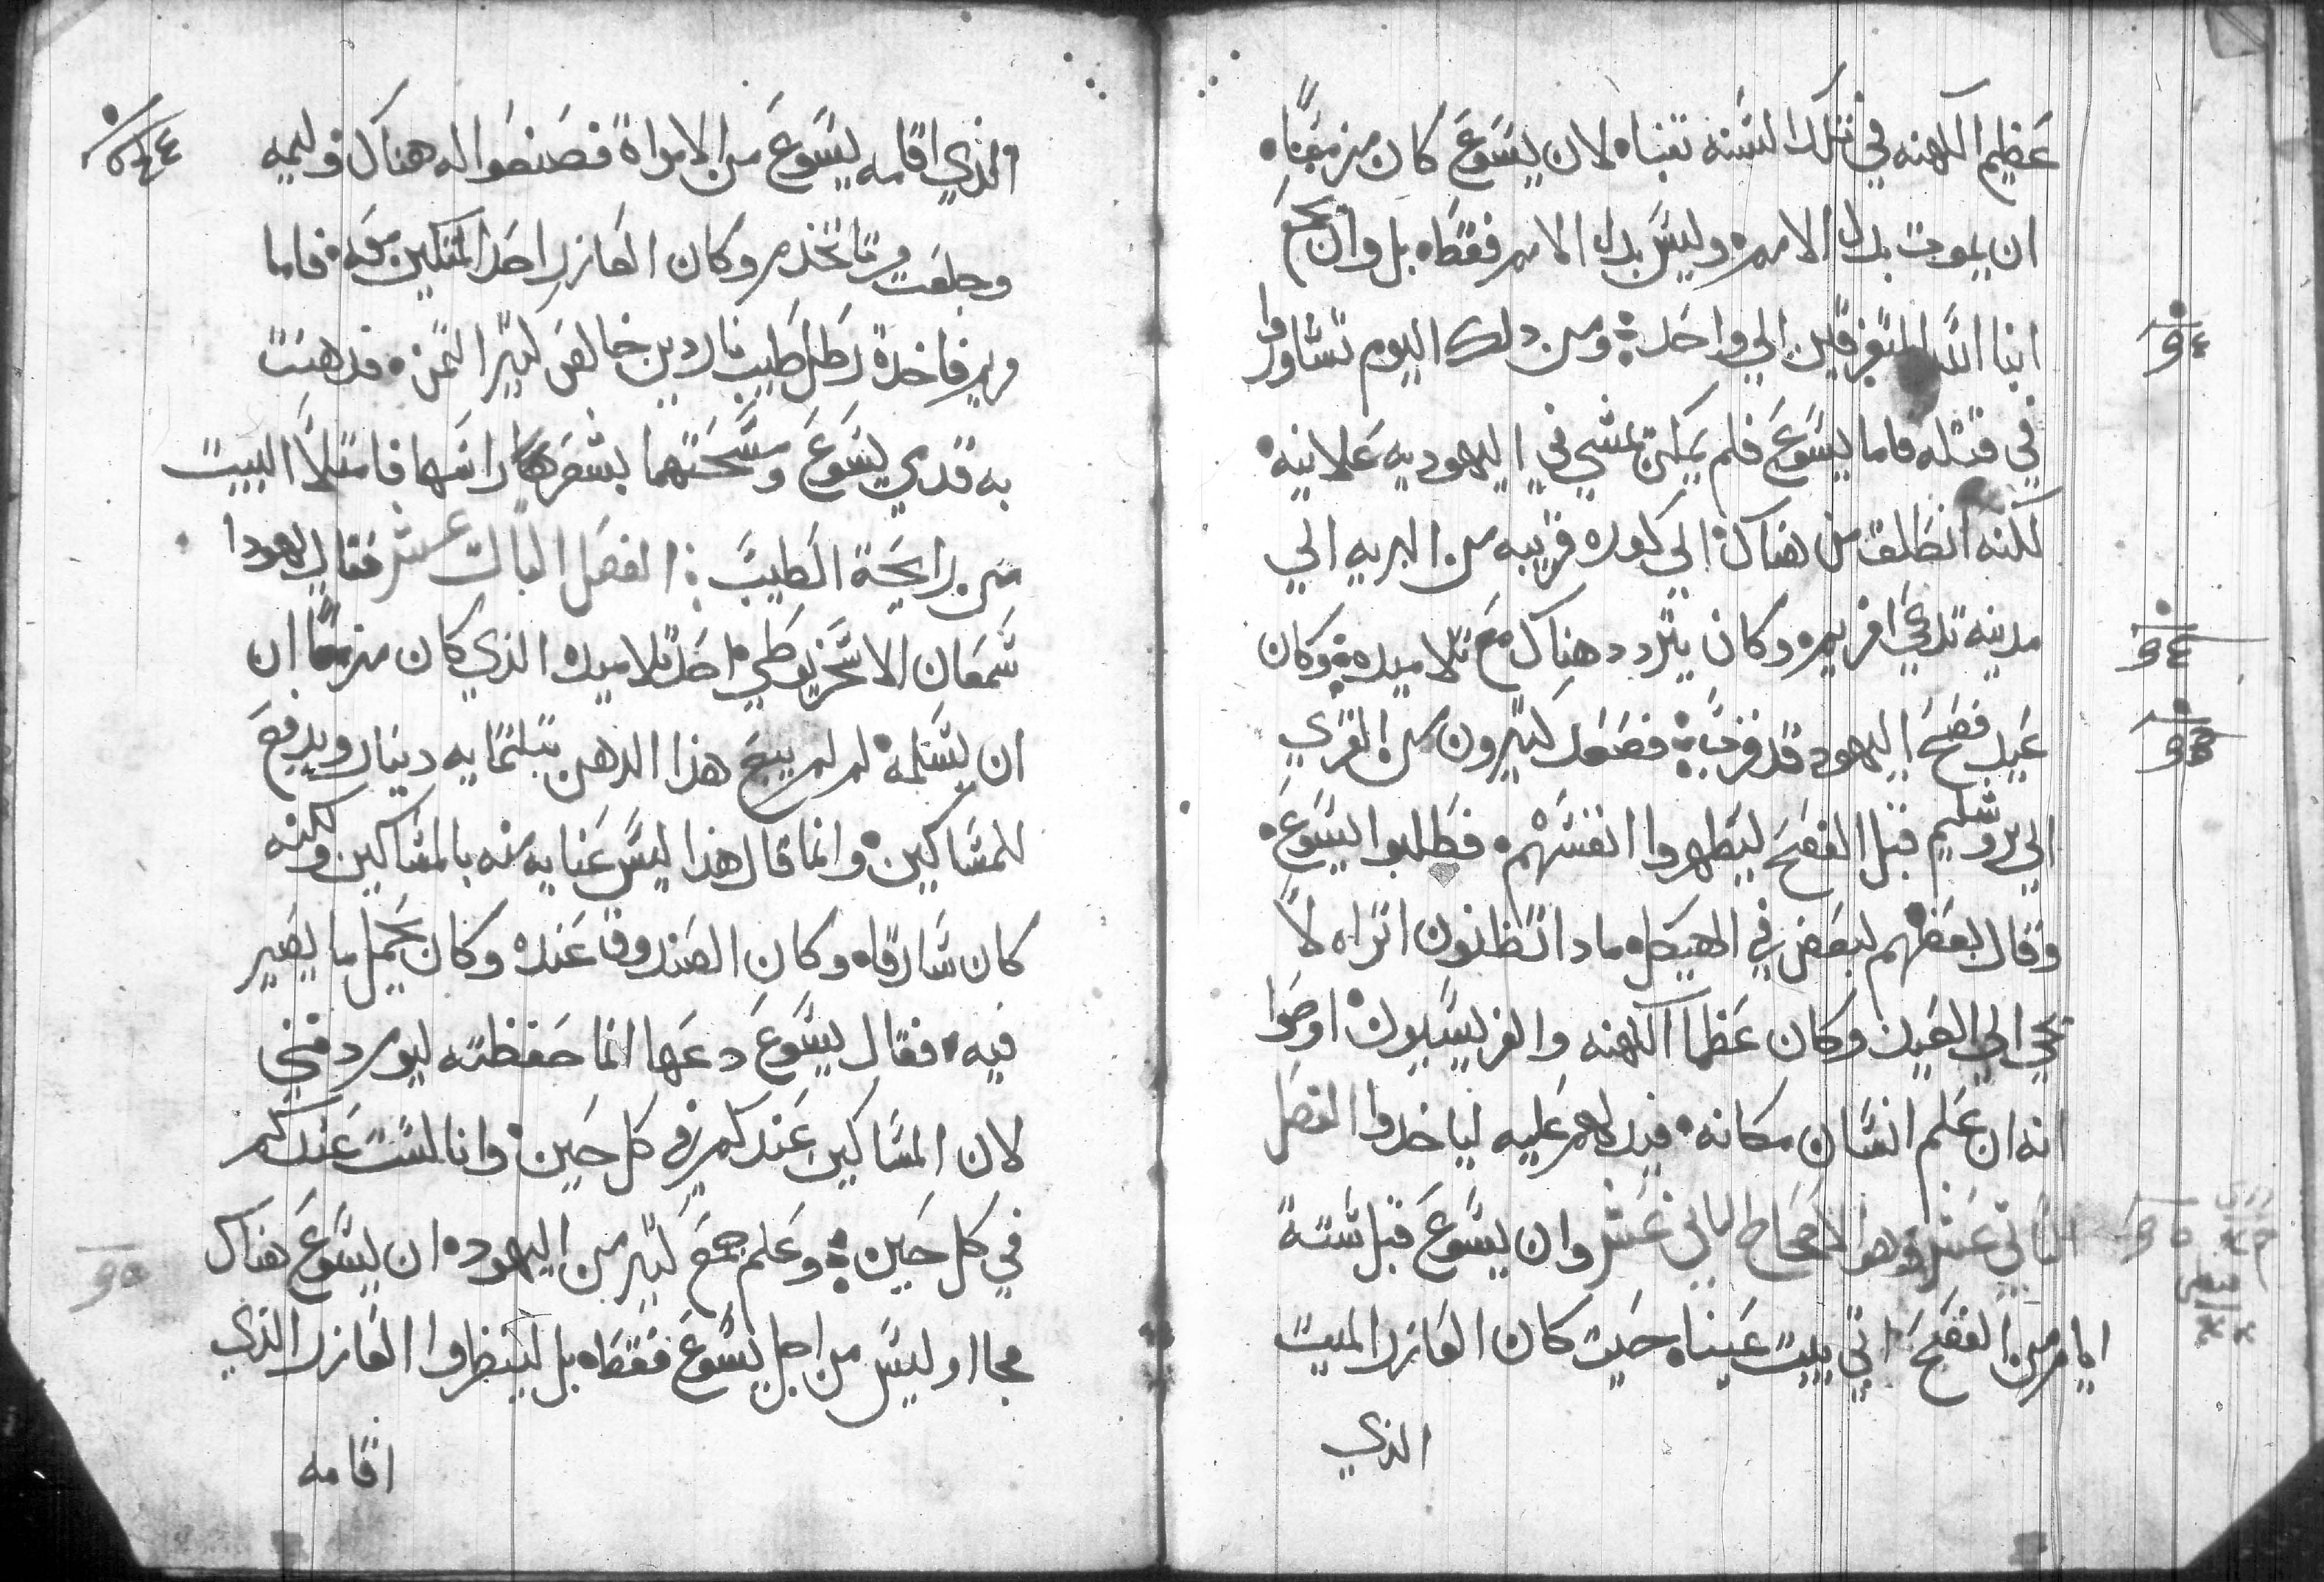 عظيم الكهنه في تلك السنه تنبا لان يسوع كان مزمعا
ان يموت بدل الامه وليس بدل الامه فقط بل وان يجمع
ابنا الله المتفرقين الي واحد ومن دلك اليوم تشاوروا
في قتله فاما يسوع فلم يكن يمشي في اليهوديه علانيه
لكنه انطلق من هناك الي كوره قريبه من البريه الي
مدينه تدعي افريم وكان يتردد هناك مع تلاميده وكان
عيد فصح اليهود قد قرب فصعد كتيرون من القري
الي يروشليم قبل الفصح ليطهروا انفسهم فطلبوا يسوع
وقال بعضهم لبعض في الهيكل مادا تظنون اتراه لا
يجي الي العيد وكان عظما الكهنه والفريسيون اوصوا
انه ان علم انسان مكانه فيدلهم عليه لياخدوا الفصل
التاني عشر وهو الاصحاح التاني عشر وان يسوع قبل ستة
ايام من الفصح اتي بيت عنيا حيت كان العازر الميت
الذي
والذي اقامه يسوع من الامراة فصنعوا له هناك وليمه
وجلعت مرتا تخدم وكان العازر احد المتكين معه فاما
مريم فاخدة رطل طيب ناردين خالص كتير التمن فدهنت
به قدمي يسوع ومسحتهما بشعرها راسها فامتلا البيت
من رايحة الطيب الفصل التالت عشر فقال يهودا
شمعان الاسخريوطي احد تلاميده الذي كان مزمعا ان
ان يسلمه لم لم يبيع هذا الدهن بتلتمايه دينار ويدفع
للمساكين وانما قال هذا ليس عنايه منه بالمساكين ولكنه
كان سارقا وكان الصندوق عنده وكان يحمل ما يصير
فيه فقال يسوع دعها انما حفظته ليوم دفني
لان المساكين عندكم في كل حين وانا لست عندكم
في كل حين وعلم جمع كتير من اليهود ان يسوع هناك
فجااو ليس من اجل يسوع فقط بل لينظروا العازر الذي
اقامه